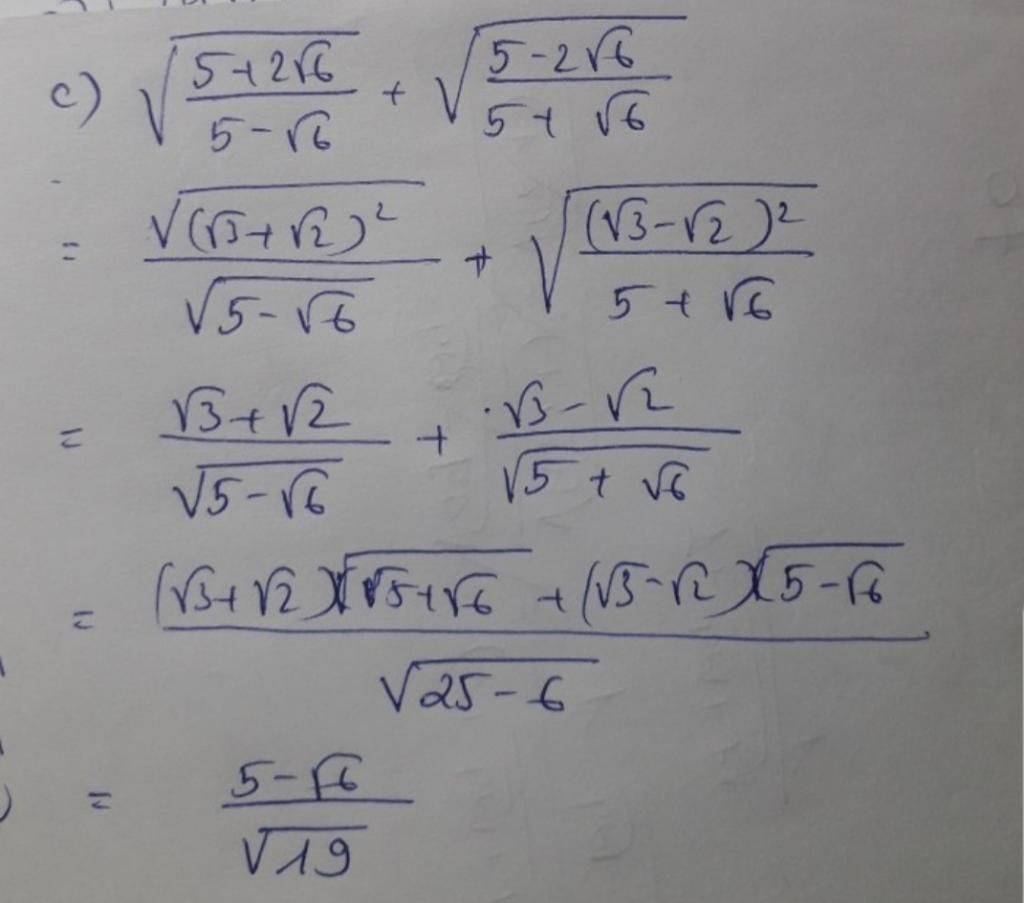 c) √((5+2√6)/(5-√6)) + √((5-2√6)/(5+√6))
= √((√3+√2)²)/√(5-√6) + √((√3-√2)²/(5+√6))
= (√3+√2)/√(5-√6) + (√3-√2)/√(5+√6)
= ((√3+√2)√(5+√6) + (√3-√2)√(5-√6))/√(25-6)
= (5-√6)/√19